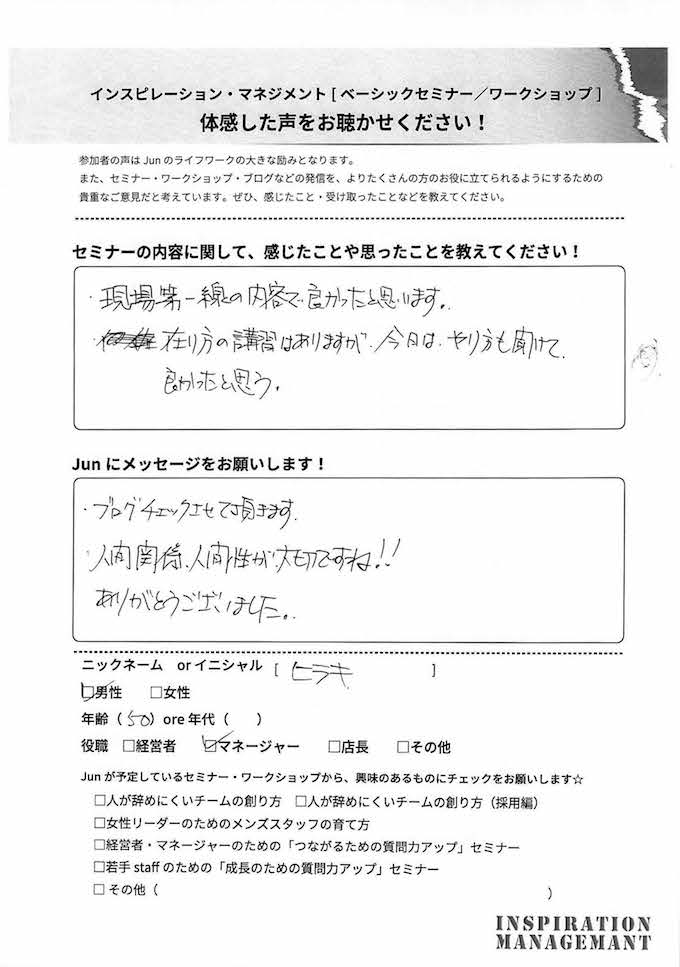 インスピレーション・マネジメント [ ベーシックセミナー／ワークショップ ]
体感した声をお聴かせください！
参加者の声は Jun のライフワークの大きな励みとなります。
また、セミナー・ワークショップ・ブログなどの発信を、よりたくさんの方のお役に立てられるようにするための
貴重なご意見だと考えています。ぜひ、感じたこと・受け取ったことなどを教えてください。
セミナーの内容に関して、感じたことや思ったことを教えてください！
・現場第一線の内容で良かったと思います。
・在り方の講習はありますが、今日は、やり方も聞けて、
良かったと思う。
Jun にメッセージをお願いします！
・ブログチェックさせて頂きます。
・人間関係、人間性が大切ですね!!
ありがとうございました。
ニックネーム or イニシャル [ ヒラキ ]
☑男性 □女性
年齢（50）ore 年代（ ）
役職 □経営者 ☑マネージャー □店長 □その他
Jun が予定しているセミナー・ワークショップから、興味のあるものにチェックをお願いします☆
□人が辞めにくいチームの創り方 □人が辞めにくいチームの創り方（採用編）
□女性リーダーのためのメンズスタッフの育て方
□経営者・マネージャーのための「つながるための質問力アップ」セミナー
□若手 staff のための「成長のための質問力アップ」セミナー
□ その他（ ）
INSPIRATION
MANAGEMANT